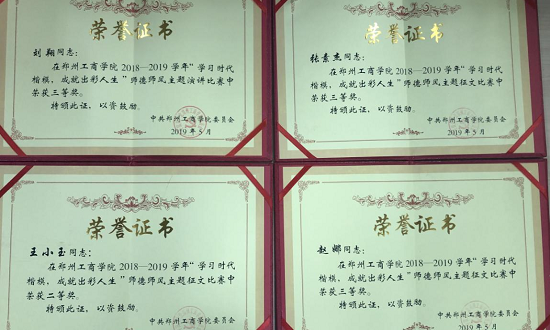 荣誉证书
刘翔同志：
在郑州工商学院2018—2019学年“学习时代
楷模，成就出彩人生”师德师风主题演讲比赛中
荣获三等奖。
特颁此证，以资鼓励。
中共郑州工商学院委员会
2019年5月
荣誉证书
张素杰同志：
在郑州工商学院2018—2019学年“学习时代
楷模，成就出彩人生”师德师风主题征文比赛中
荣获三等奖。
特颁此证，以资鼓励。
中共郑州工商学院委员会
2019年5月
荣誉证书
王小玉同志：
在郑州工商学院2018—2019学年“学习时代
楷模，成就出彩人生”师德师风主题征文比赛中
荣获二等奖。
特颁此证，以资鼓励。
中共郑州工商学院委员会
荣誉证书
赵娜同志：
在郑州工商学院2018—2019学年“学习时代
楷模，成就出彩人生”师德师风主题征文比赛中
荣获三等奖。
特颁此证，以资鼓励。
中共郑州工商学院委员会
2019年5月